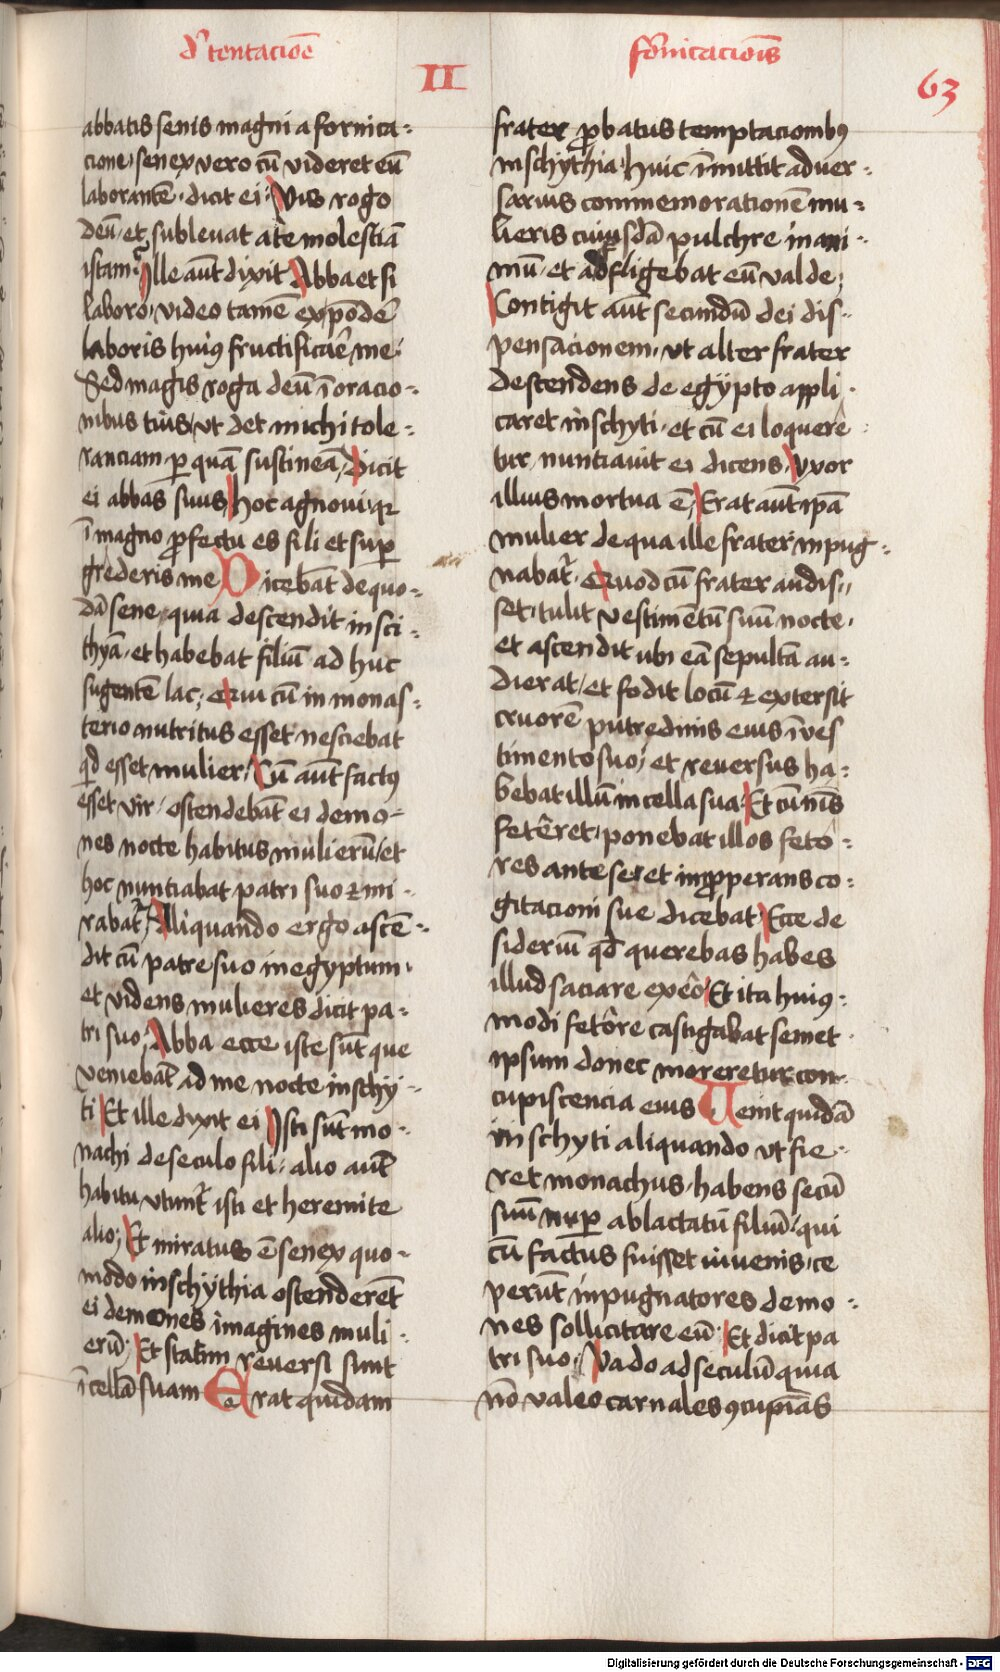 dʼ tentacioē
II
fōrnicacioīs
63
abbatis senis magni a fornica-
cione, senex vero cū videret eū
laborantē. dicit ei. Vis rogo
deū et sublevat a te molestiā
istam. Ille aūt dixit Abba et si
laboro, video tamē ex pōde
laboris huiꝰ fructificare me.
Sed magis roga deū ī oracio-
nibus tuis, vt det michi tole-
ranciam. per quā sustineā, dicit
ei abbas suus hoc agnoui, qꝛ
ī magno ꝓfectu es fili et suꝑ
grederis me Dicebat de quo-
dā sene, quia descendit in sci-
thyā. et habebat filiū ad huc
sugentē lac, Qui cū in monas-
terio nutritus esset nesciebat
qd esset mulier, Cū aūt factꝰ
esset vir, ostendebāt ei demo-
nes nocte habitus mulierū, et
hoc nuntiabat patri suo ⁊ mi-
rabatʳ, Aliquando ergo ascē-
dit cū patre suo in egyptum.
et videns mulieres dicit pa-
tri suo, Abba ecce iste sūt que
veniebāt ad me nocte in schy-
ti Et ille dixit ei Isti sūt mo-
nachi de seculo fili, alio aūt
habitu vtuntʳ isti et heremite
alio; Et miratus ē senex quo-
modo in schythia ostenderēt
ei demones imagines muli-
erū. Et statim reuersi sunt
ī cellā suam Erat quidam
frater ꝓbatus temptacionibꝰ
in schythia, huic īmittit aduer-
sarius commemorationē mu-
lieris cuiusdā pulchre in ani-
mū. et adfligebat eū valde;
Contigit aūt secundū dei dis-
pensacionem, vt alter frater
descendens de egypto appli-
caret in schyti, et cū ei loquere-
tur, nuntiauit ei dicens, Vxor
illius mortua ē, Erat aūt ipā
mulier de qua ille frater inpug-
nabatʳ. Quod cū frater audis-
set, tulit vestimētū suū nocte,
et ascendit ubi eā sepultā au-
dierat, et fodit locū ⁊ extersit
cruorē putredinis eius ī ves
timento suo, et reuersus ha-
bebat illū in cella sua. Et cū nīs
feteret, ponebat illos feto-
res ante se, et inꝓperans co-
gitacioni sue dicebat, Ecce de
siderīu qd querebas habes
illud saciare ex eo Et ita huiꝰ-
modi fetore castigabat semet
ipsum donec moreretur con-
cupiscencia eius Venit quidā
in schyti aliquando vt fie-
ret monachus, habens secū
suū nuꝑ ablactatū filiū, qui
cū factus fuisset iuuenis, ce
perūt inpugnatores demo-
nes sollicitare eū. Et dicit pa
tri suo, Vado ad seculū quia
nō valeo carnales ꝯcupīas
Digitalisierung gefördert durch die Deutsche Forschungsgemeinschaft - DFG